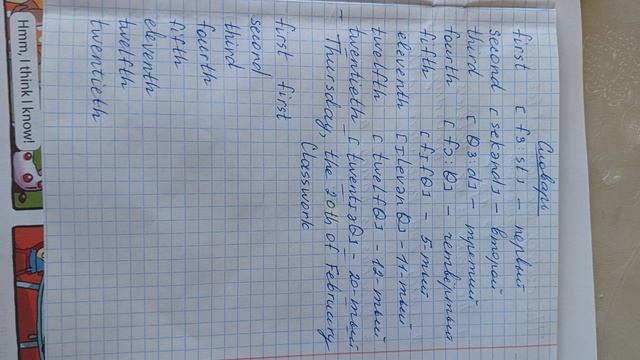 Словарь
first [fɜ:st] – первый
second [sekənd] – второй
third [θɜ:d] – третий
fourth [fɔ:θ] – четвёртый
fifth [fɪfθ] – 5-тый
eleventh [ɪlevənθ] – 11-тый
twelfth [twelfθ] – 12-тый
twentieth [twentɪəθ] – 20-тый
– Thursday, the 20th of February
Classwork
first first
second
third
fourth
fifth
eleventh
twelfth
twentieth
Hmm, I think I know!